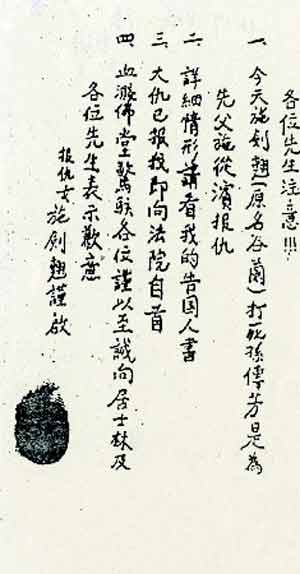 各位先生注意!!!
一、今天施剑翘(原名谷蘭)打死孫傳芳是為
先父施從濱报仇
二、詳細情形請看我的告国人書
三、大仇已报我即向法院自首
四、血溅佛堂驚駭各位謹以至誠向居士林及
各位先生表示歉意
报仇女施剑翘謹啟